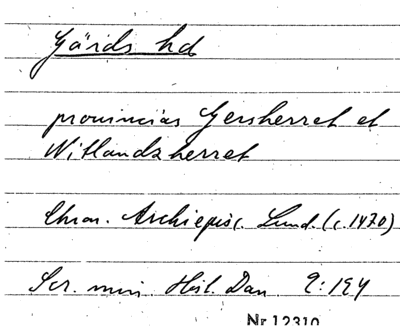 Gärds hd
provincias Gersherret et
Witlandzherret
Chron. Archiepisc. Lund. (c. 1470)
Scr. min. Hist. Dan. 2:194
Nr 12310